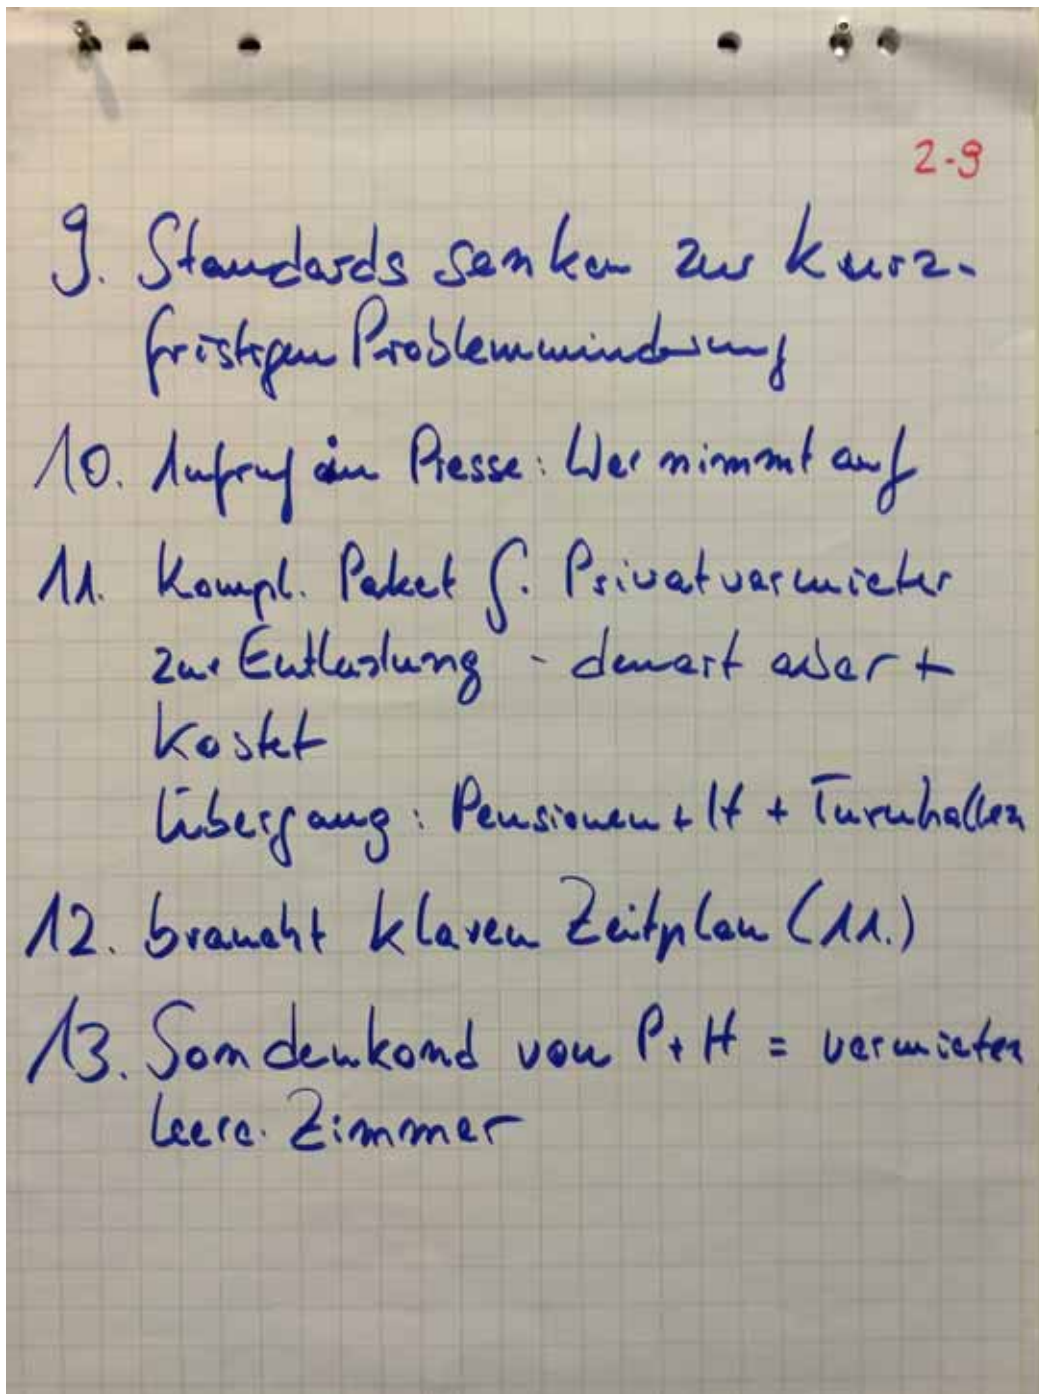 2-9
9. Standards senken zur kurz-
fristigen Problemminderung
10. Aufruf in Presse: Wer nimmt auf
11. Kompl. Paket f. Privatvermieter
zur Entlastung - dauert aber +
kostet
Übergang: Pensionen + H + Turnhallen
12. braucht klaren Zeitplan (11.)
13. von P + H = vermieten
leere Zimmer